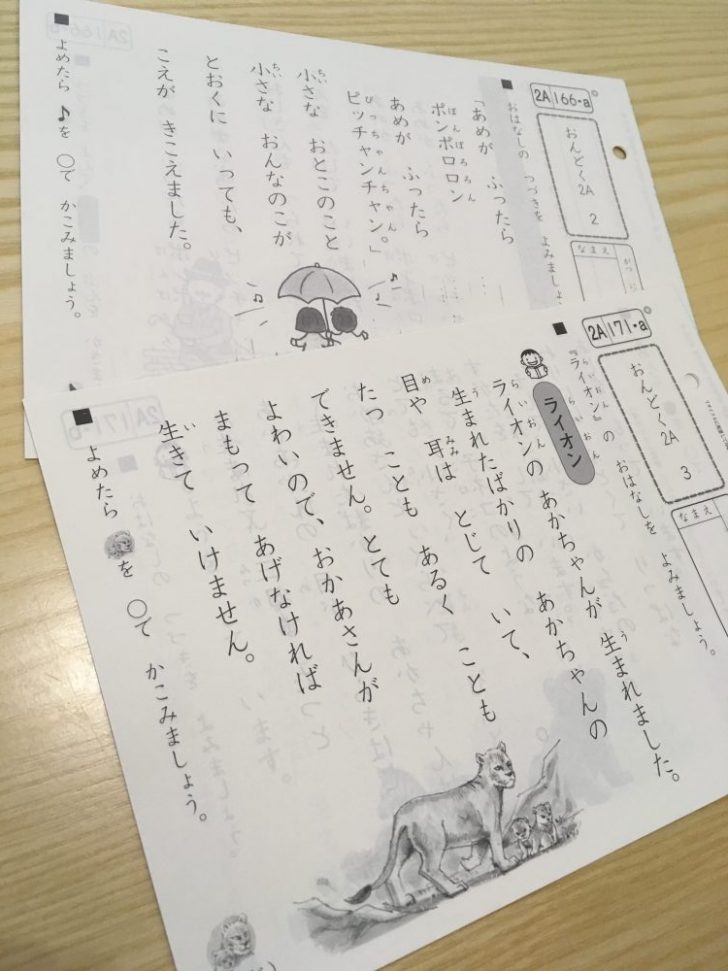 2A 166・a
おんどく2A
2
なまえ
■ おはなしの つづきを よみましょ
「あめが ふったら
ポンポロロン
あめが ふったら
ピッチャンチャン。」
小さな おとこのこと
小さな おんなのこが
とおくに いっても、
こえが きこえました。
■ よめたら ♪を ○で かこみましょう。
2A 171・a
おんどく2A
3
なまえ
■ 『ライオン』の おはなしを よみましょう。
ライオン
ライオンの あかちゃんが 生まれました。
生まれたばかりの あかちゃんの
目や 耳は とじて いて、
たつ ことも あるく ことも
できません。とても
よわいので、おかあさんが
まもって あげなければ
生きて いけません。
■ よめたら を ○で かこみましょう。